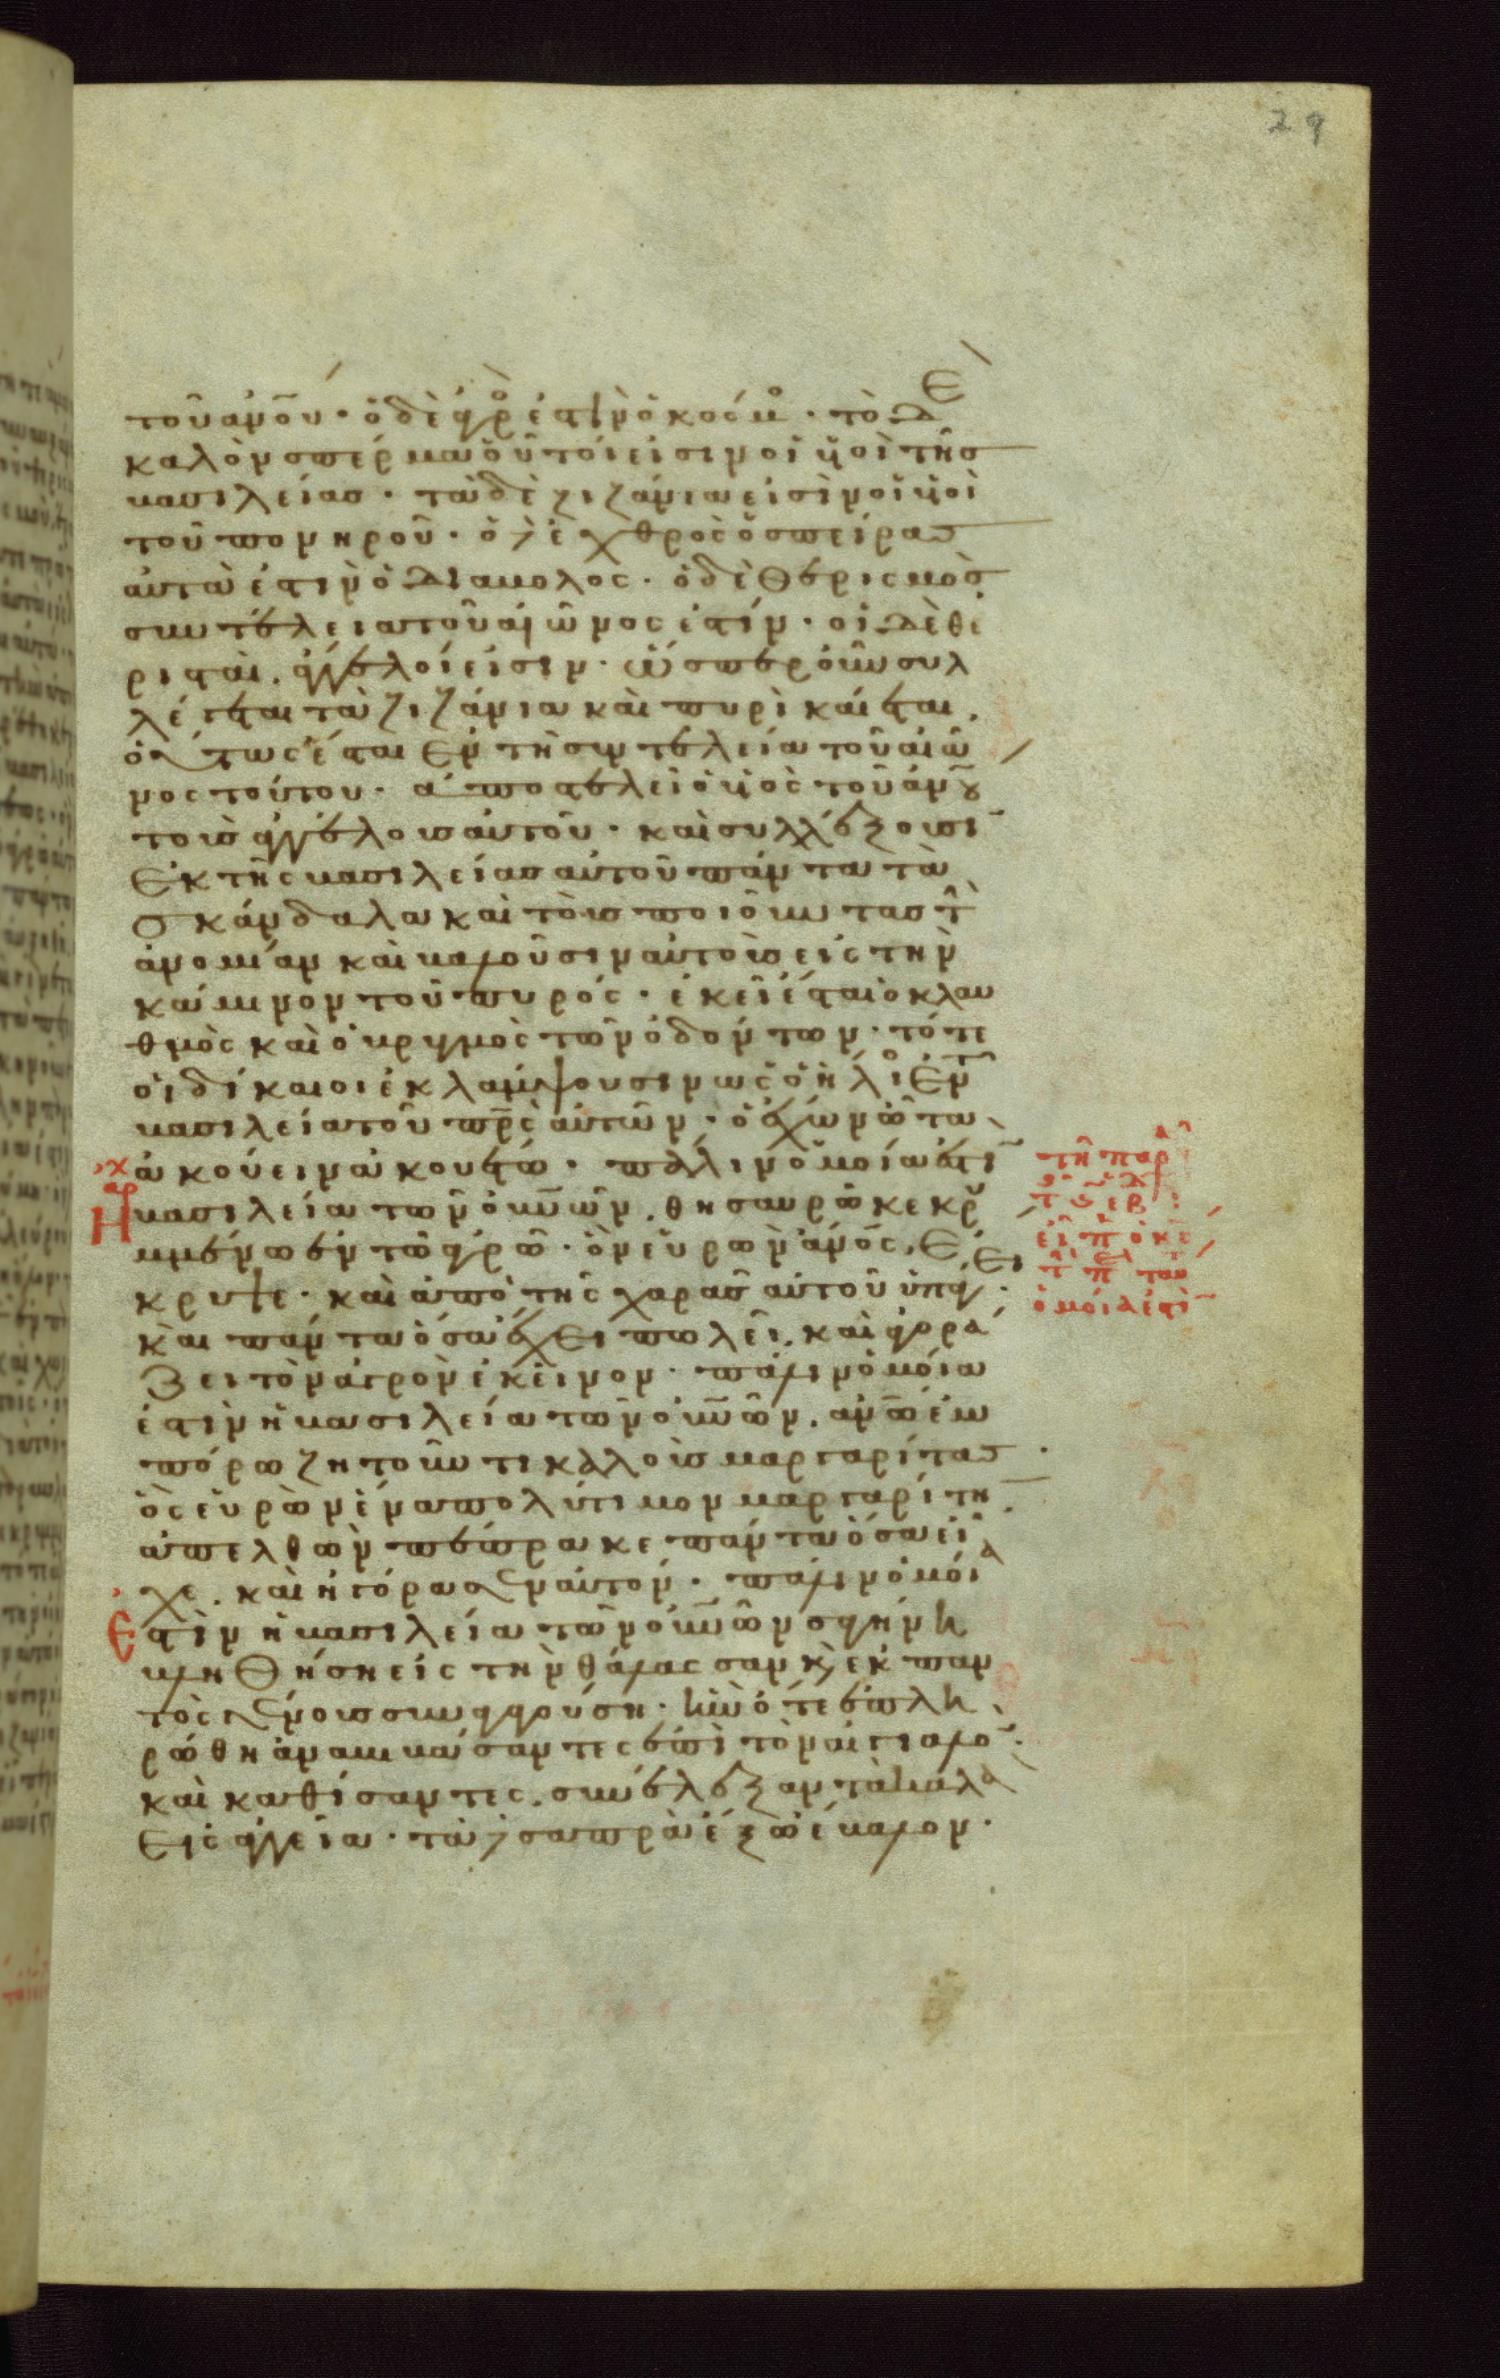 29
τοῦ ἀνου· ὁ δὲ ἀγρο ἐστὶν ὁ κόσμο· τὸ δε
καλὸν σπέρμα οὗτοί εἰσιν οἱ υἱοὶ τῆς
βασιλείας· τὰ δὲ ζιζάνια εἰσὶν οἱ υἱοὶ
τοῦ πονηροῦ· ὁ δὲ ἐχθρὸς ὁ σπείρας
αὐτὰ ἐστὶν ὁ διάβολος· ὁ δὲ θερισμὸς
συντέλεια τοῦ αἰῶνος ἐστίν· οἱ δὲ θε
ρισταὶ, ἄγγελοί εἰσιν· ὥσπερ οὖν συλ
λέγεται τὰ ζιζάνια καὶ πυρὶ καίεται,
οὕτως ἔσται ἐν τῇ συντελεία τοῦ αἰῶ
νος τούτου· ἀποστελεῖ ὁ υἱὸς τοῦ ἀνου
τοὺς ἀγγέλους αὐτοῦ· καὶ συλλέξουσι
ἐκ τῆς βασιλείας αὐτοῦ πάντα τὰ
σκάνδαλα καὶ τοὺς ποιοῦντας τὴ
ἀνομίαν καὶ βαλοῦσιν αὐτοὺς εἰς τὴν
κάμινον τοῦ πυρός· ἐκεῖ ἔσται ὁ κλαυ
θμὸς καὶ ὁ βρυγμὸς τῶν ὀδόντων· τότε
οἱ δίκαιοι ἐκλάμψουσιν ὡς ὁ ἥλιο ἐν τῆ
βασιλεία τοῦ πρς αὐτῶν· ὁ ἔχων ὦτα
ἀκούειν ἀκουέτω· πάλιν ὁμοία ἐστὶ
ἡ βασιλεία τῶν οὐνῶν, θησαυρῶ κεκρυ
μμένω ἐν τῶ ἀγρῶ· ὃν εὑρὼν ἄνος, ἔ
κρυψε· καὶ ἀπὸ τῆς χαρᾶς αὐτοῦ ὑπάγει·
καὶ πάντα ὅσα ἔχει πωλεῖ, καὶ ἀγορά
ζει τὸν ἀγρὸν ἐκεῖνον· πάλιν ὁμοία
ἐστὶν ἡ βασιλεία τῶν οὐνῶν, ἀνω ἐμ
πόρω ζητοῦντι καλοὺς μαργαρίτας·
ὃς εὑρὼν ἕνα πολύτιμον μαργαρίτην
ἀπελθὼν πέπρακε πάντα ὅσα εἶ
χε, καὶ ἠγόρασεν αὐτόν· πάλιν ὁμοία
ἐστὶν ἡ βασιλεία τῶν οὐνῶν σαγήνη
βληθήσῃ εἰς τὴν θάλασσαν καὶ ἐκ παν
τὸς γένους συναγαγούσῃ· ἣν ὅτε ἐπλη
ρώθη ἀναβιβάσαντες ἐπὶ τὸν αἰγιαλὸ·
καὶ καθίσαντες, συνέλεξαν τὰ καλὰ
εἰς ἀγγεῖα· τὰ δὲ σαπρὰ ἔξω ἔβαλον·